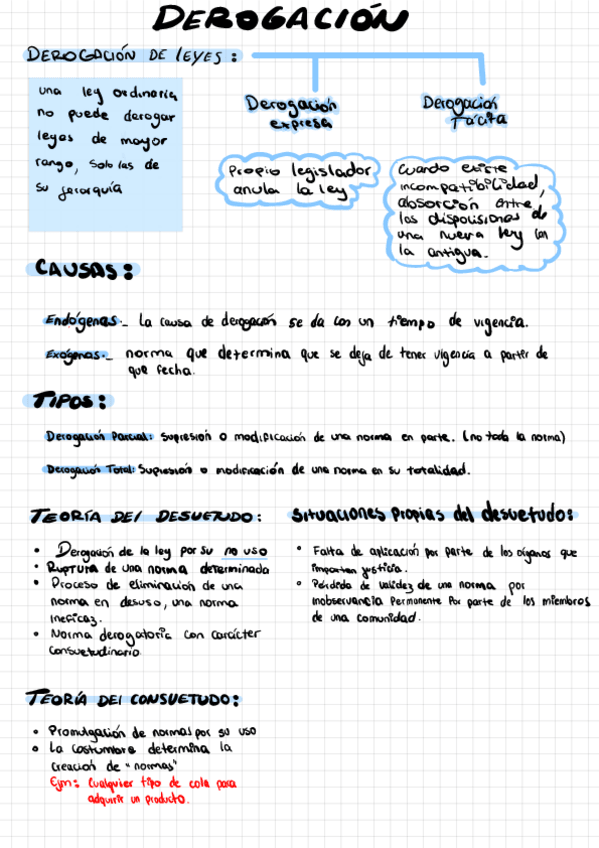 DEROGACIÓN
DEROGACIÓN DE LEYES:
una ley ordinaria
no puede derogar
leyes de mayor
rango, solo las de
su jerarquía
Derogación
expresa
Derogación
Tácita
Propio legislador
anula la ley
Cuando existe
incompatibilidad,
absorción entre
las disposiciones de
una nueva ley con
la antigua.
CAUSAS:
Endógenas._ La causa de derogación se da con un tiempo de vigencia.
Exógenas._ norma que determina que se deja de tener vigencia a partir de
que fecha.
TIPOS:
Derogación Parcial: Supresión o modificación de una norma en parte. (no toda la norma)
Derogación Total: Supresión o modificación de una norma en su totalidad.
TEORÍA DEL DESUETUDO:
• Derogación de la ley por su no uso
• Ruptura de una norma determinada
• Proceso de eliminación de una
norma en desuso, una norma
ineficaz.
• Norma derogatoria con carácter
consuetudinario.
Situaciones propias del desuetudo:
• Falta de aplicación por parte de los órganos que
imparten justicia.
• Pérdida de validez de una norma por
inobservancia permanente por parte de los miembros
de una comunidad.
TEORÍA DEL CONSUETUDO:
• Promulgación de normas por su uso
• La costumbre determina la
creación de "normas"
Ejm: Cualquier tipo de cola para
adquirir un producto.